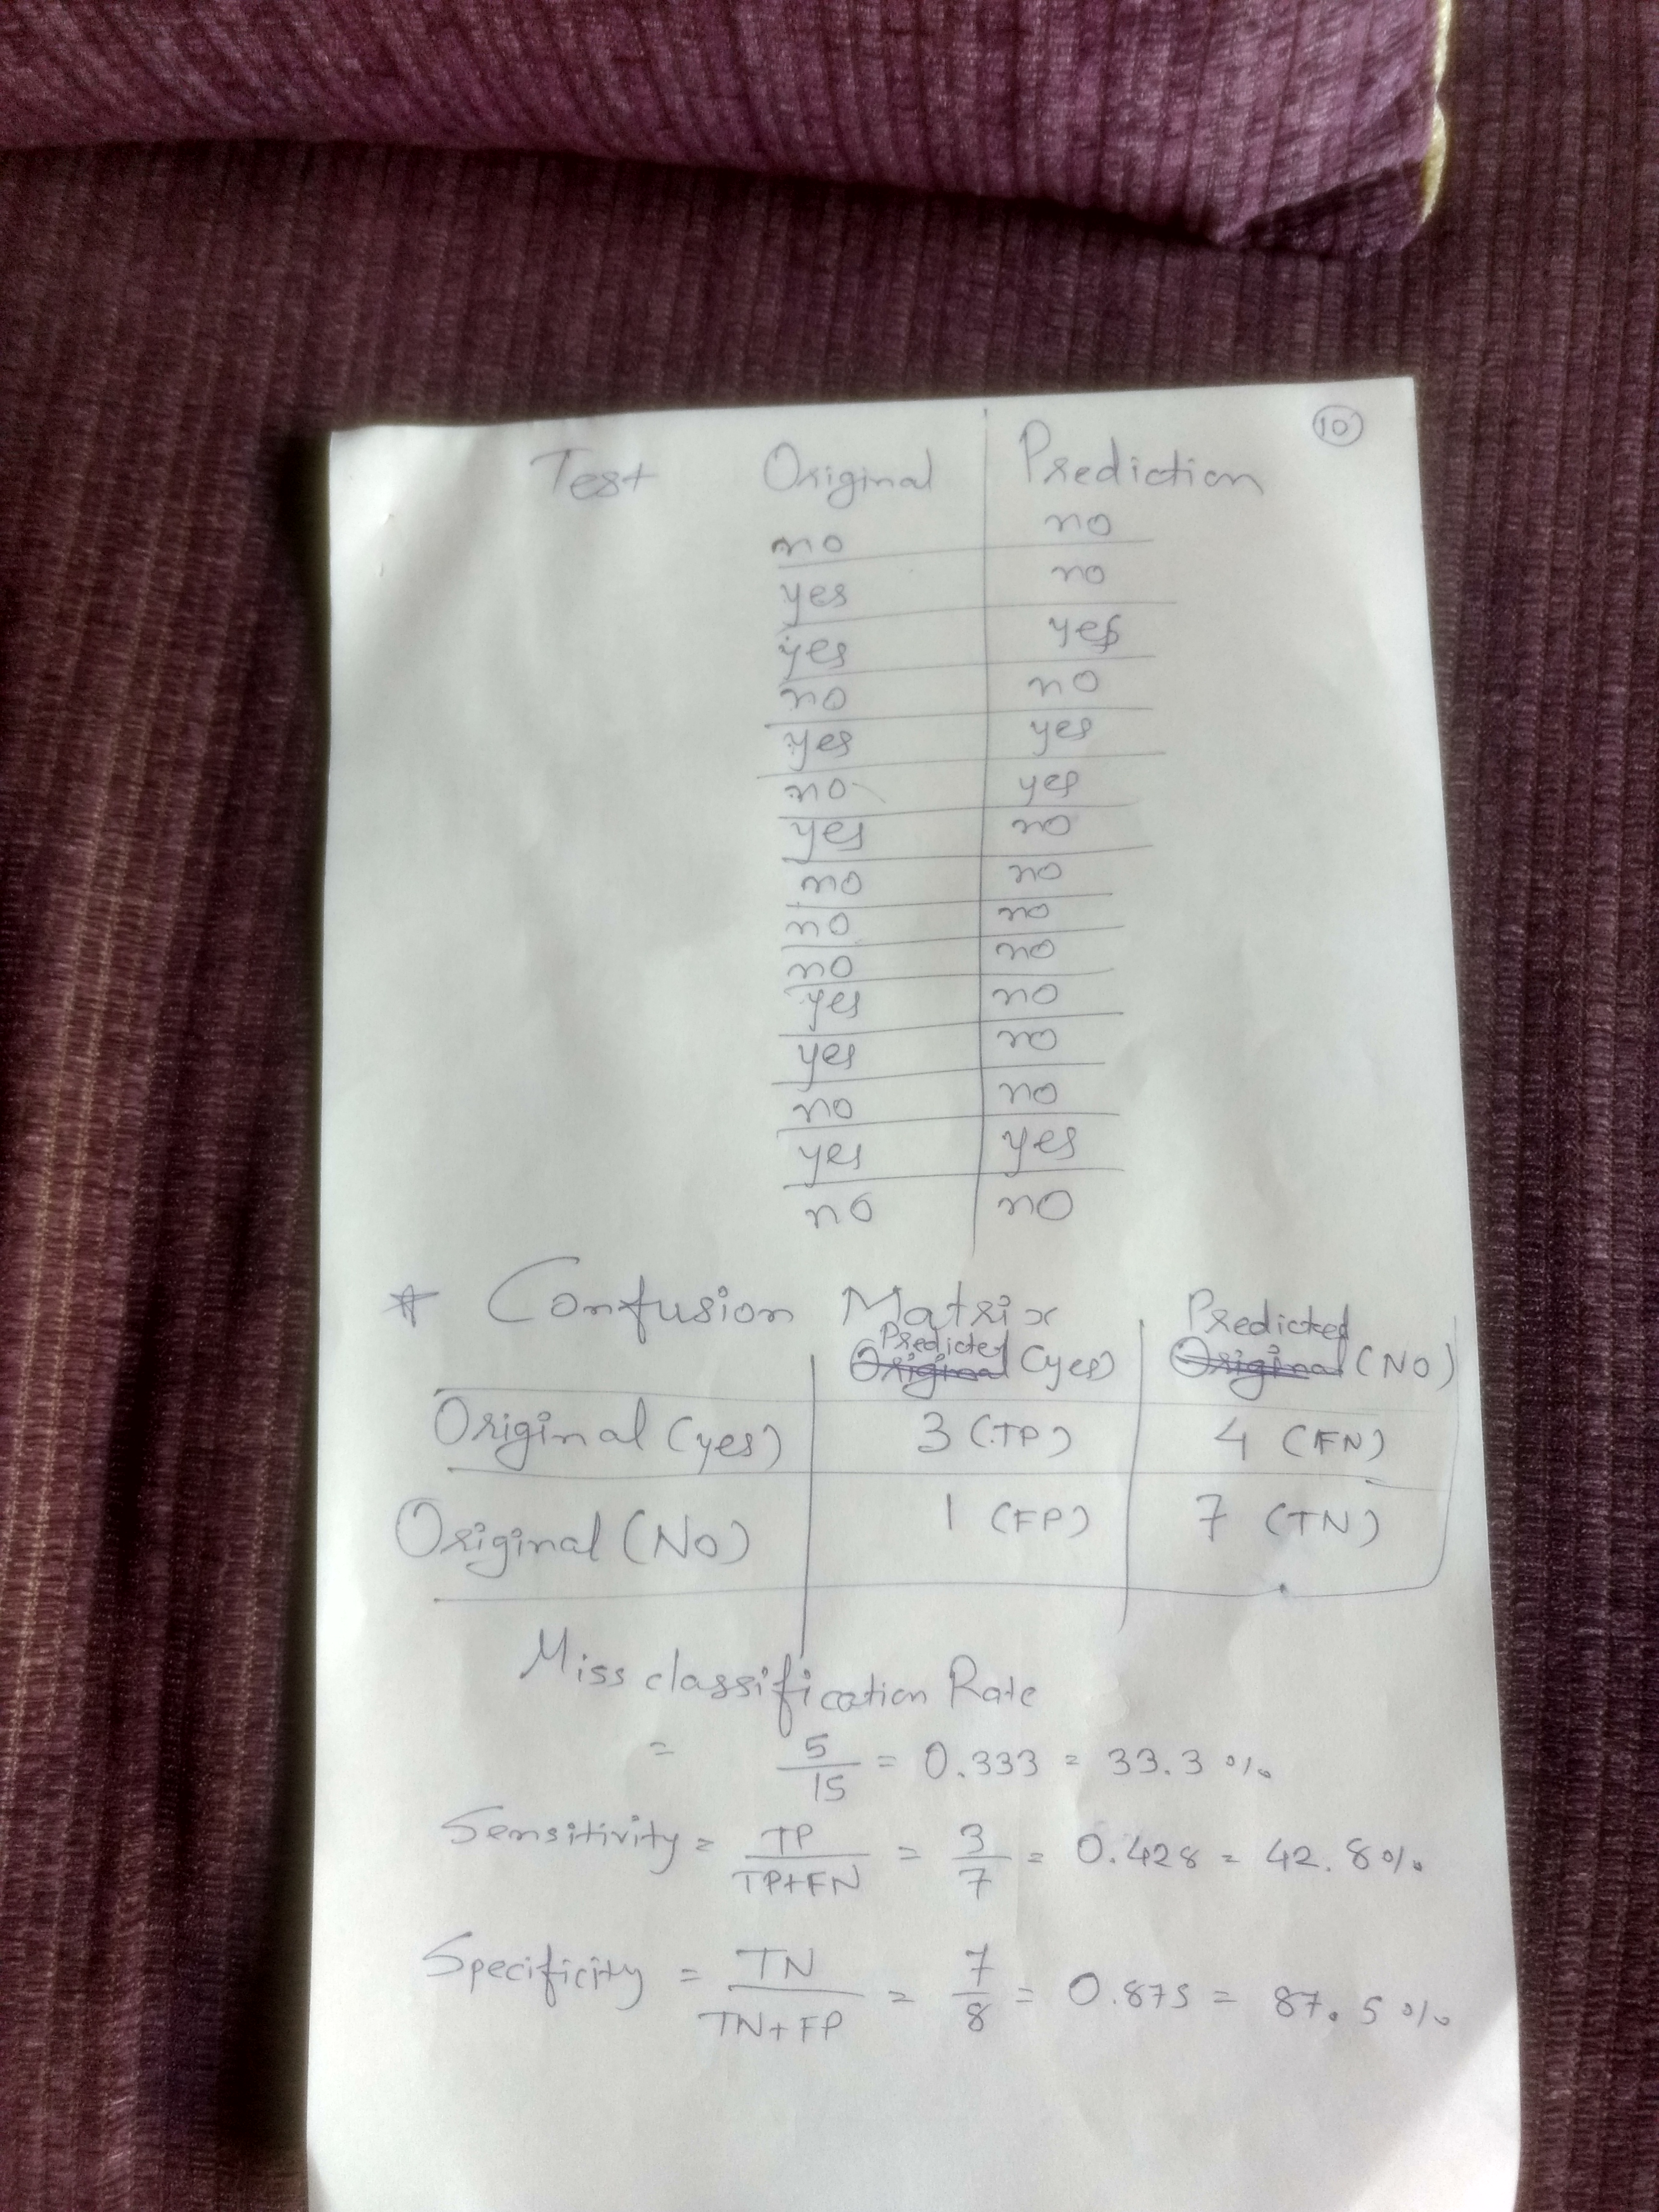 10
Test Original Prediction
no no
yes no
yes yes
no no
yes yes
no yes
yes no
no no
no no
no no
yes no
yes no
no no
yes yes
no no
* Confusion Matrix
Predicted Predicted
Original (yes) Original (NO)
Original (yes) 3 (TP) 4 (FN)
Original (No) 1 (FP) 7 (TN)
Miss classification Rate
= 5/15 = 0.333 = 33.3 %
Sensitivity = TP/TP+FN = 3/7 = 0.428 = 42.8%
Specificity = TN/TN+FP = 7/8 = 0.875 = 87.5%